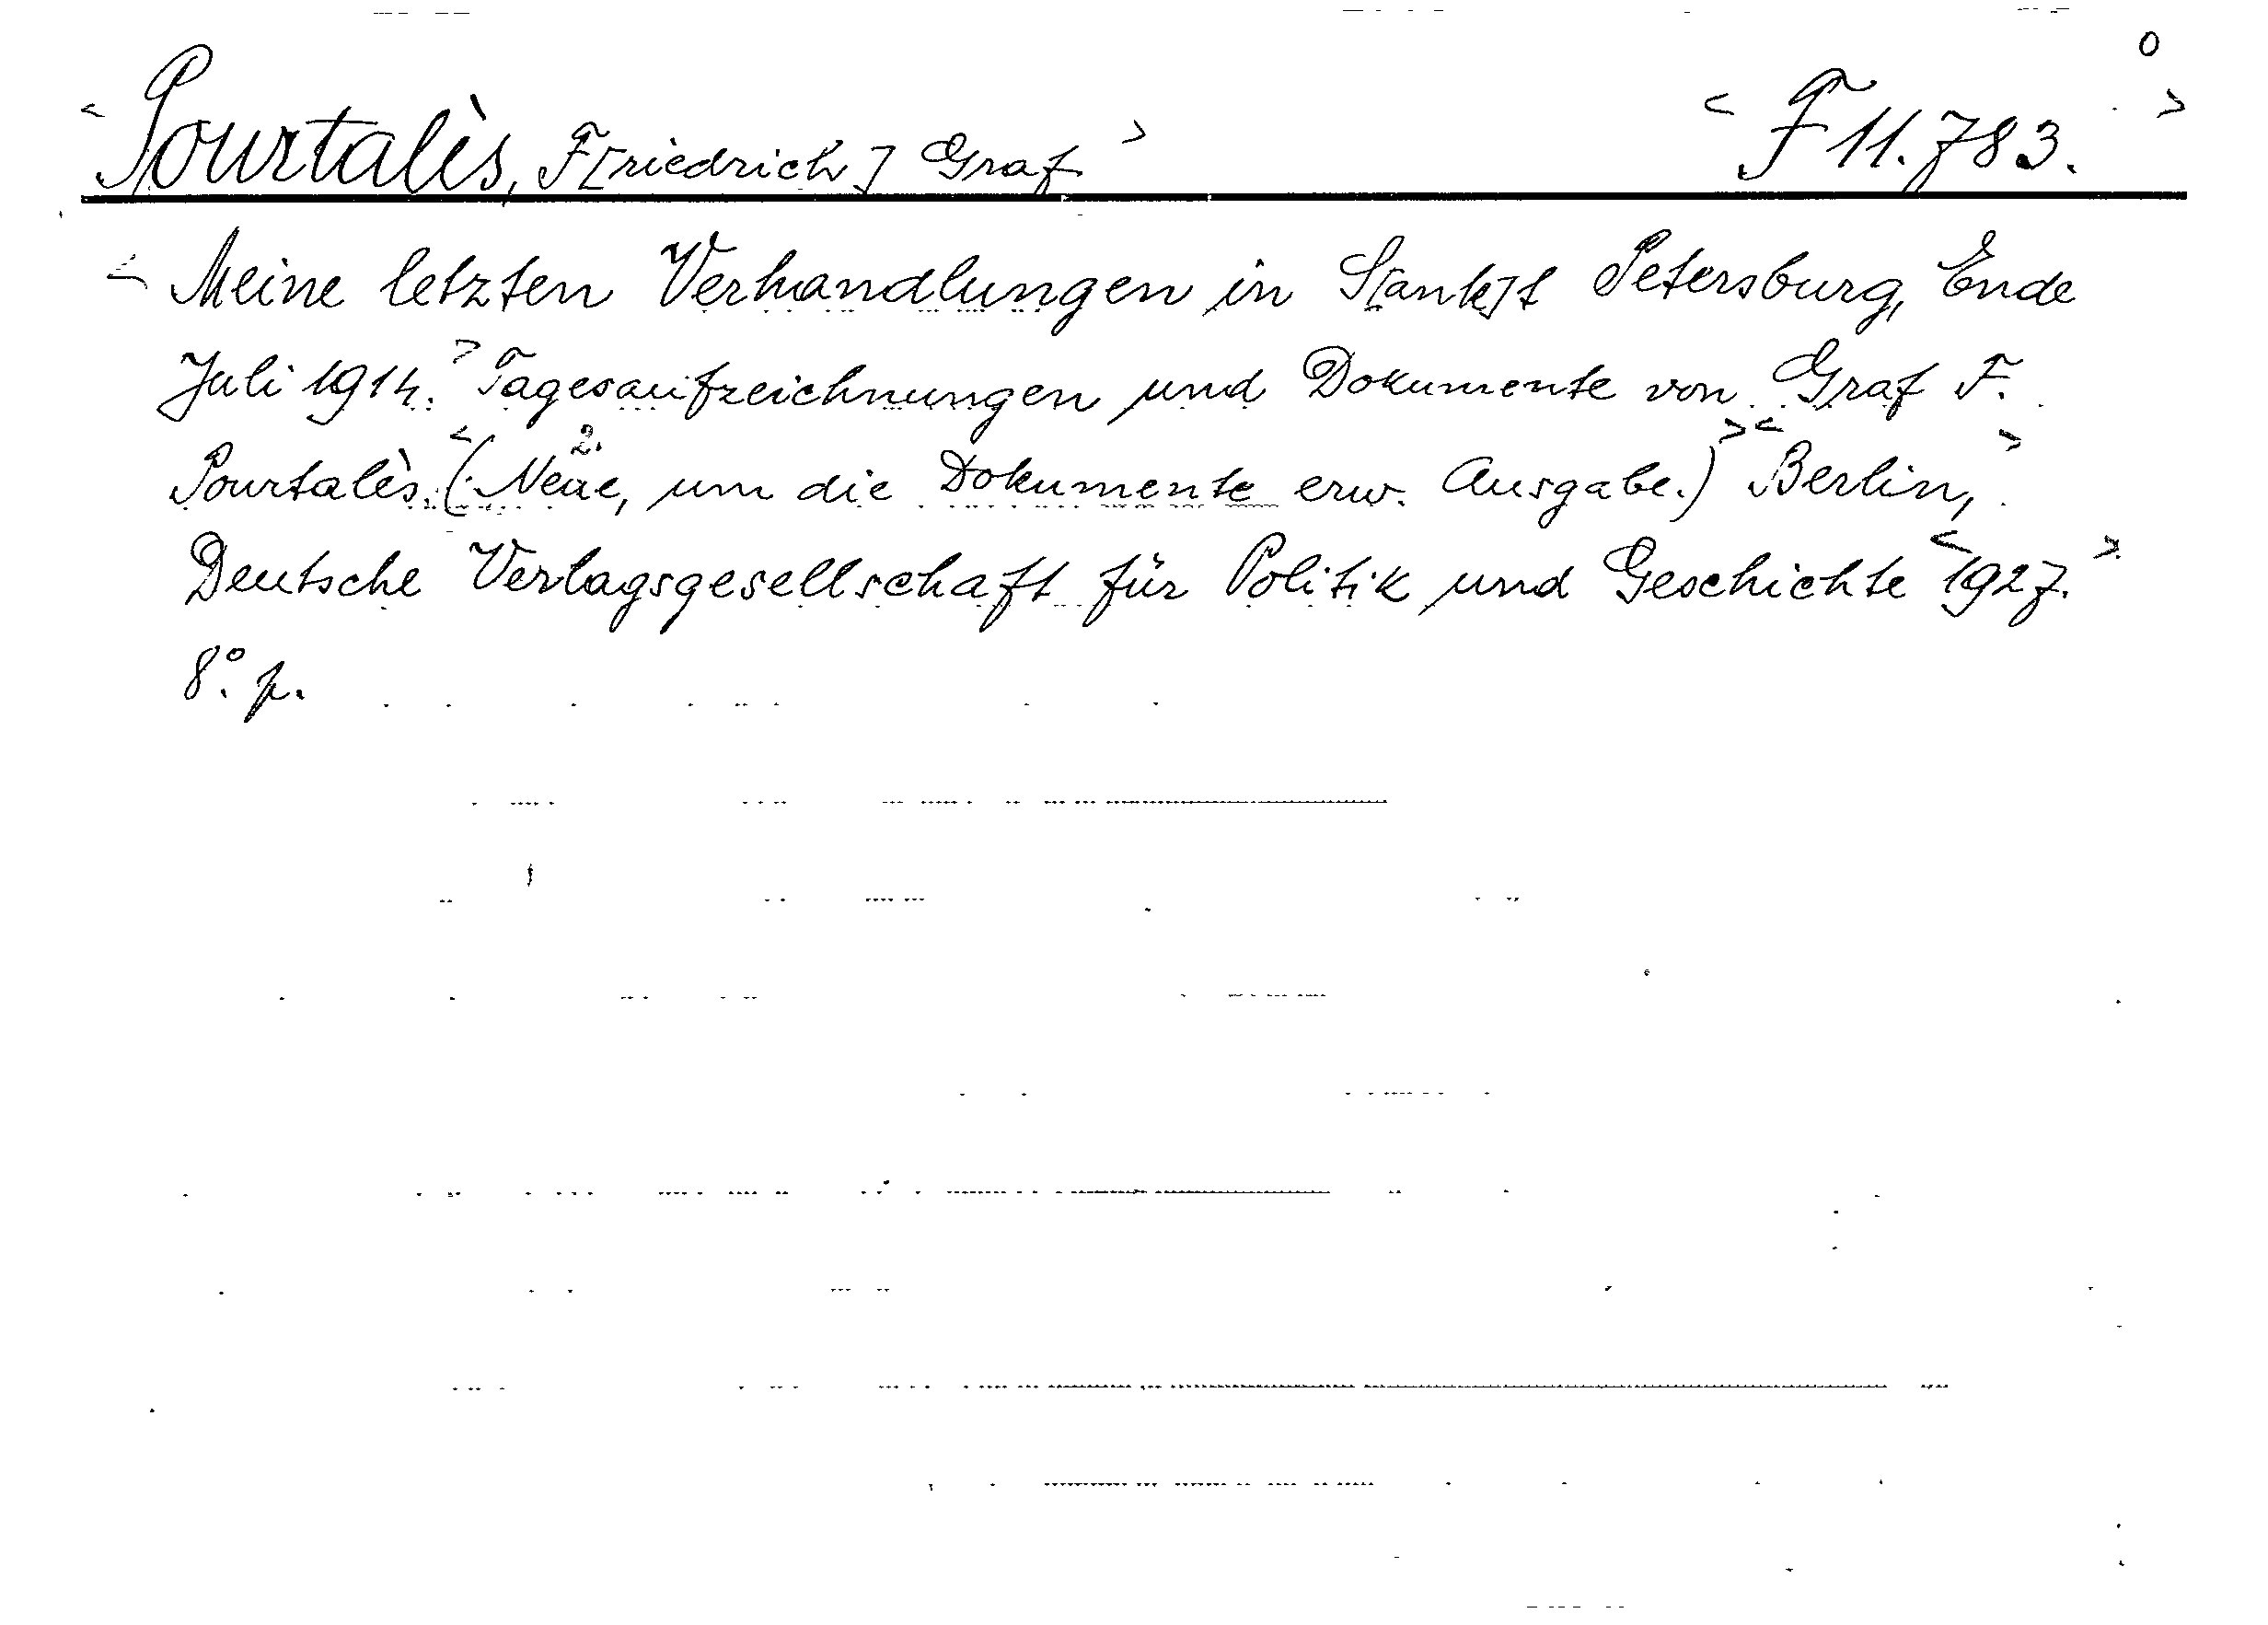 o
< Pourtalès, F[riedrich] Graf > < F 11.783. >
< Meine letzten Verhandlungen in S[ank]t Petersburg, Ende
Juli 1914. > Tagesaufzeichnungen und Dokumente von Graf F.
Pourtalès. < (Neue, 2. um die Dokumente erw. Ausgabe.) > < Berlin, >
Deutsche Verlagsgesellschaft für Politik und Geschichte < 1927. >
8°. p.